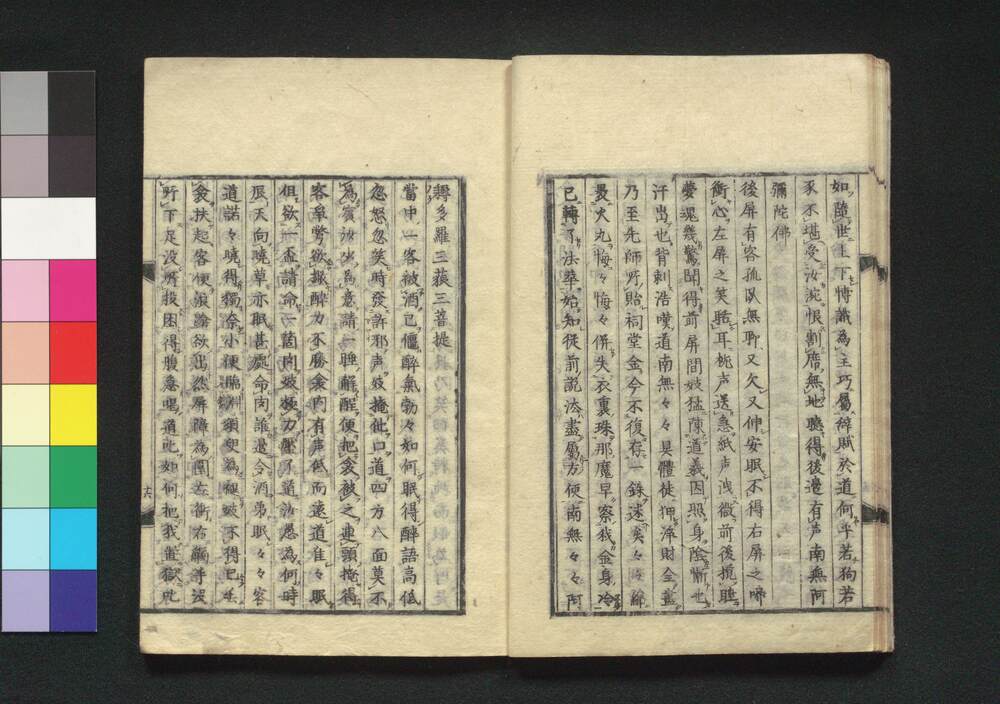 如隨世上下博識為主巧屬辞賦於道何乎若狗若
豕不堪受汝涴恨割席無地聽得後邊有声南無阿
彌陀佛
後屏有客孤臥無聊又欠又伸安眠不得右屏之啼
衝心左屏之笑聒耳梔声送急紙声洩微前後攪睡
夢魂幾驚聞得前屏間妓猛陳道義因照身陰慚也
汗出也背刺浩嘆道南無々々具體徒狎濟財全盡
乃至先師所貽祠堂金今不復存一銖迷矣々
最火丸悔々悔々併失衣裏珠那魔早察我金身冷
已轉了法華始知從前說法盡屬方便南無々々阿
耨多羅三藐三菩提
當中一客被酒已儘醉氣勃々如何眠得醉語高低
忽怒忽笑時發訐邪声妓掩他口道四方八面莫不
為賓汝少為意請一睡解醒便把衾被之連頭掩得
客牽臂欲撥醉力不勝衾内有声低而遠道准々眠
但欲一盃請命一箇肉妓極力壓了道汝愚為何時
辰天向曉草亦眠甚處命肉誰邊命酒弟眠々々客
道諾々曉得獨奈小便臨
衾扶起客便浪蹌欲出然屏障為圍左衝右礙
所下足没所按困得腹急喝道此如何把我韭獄叱
六